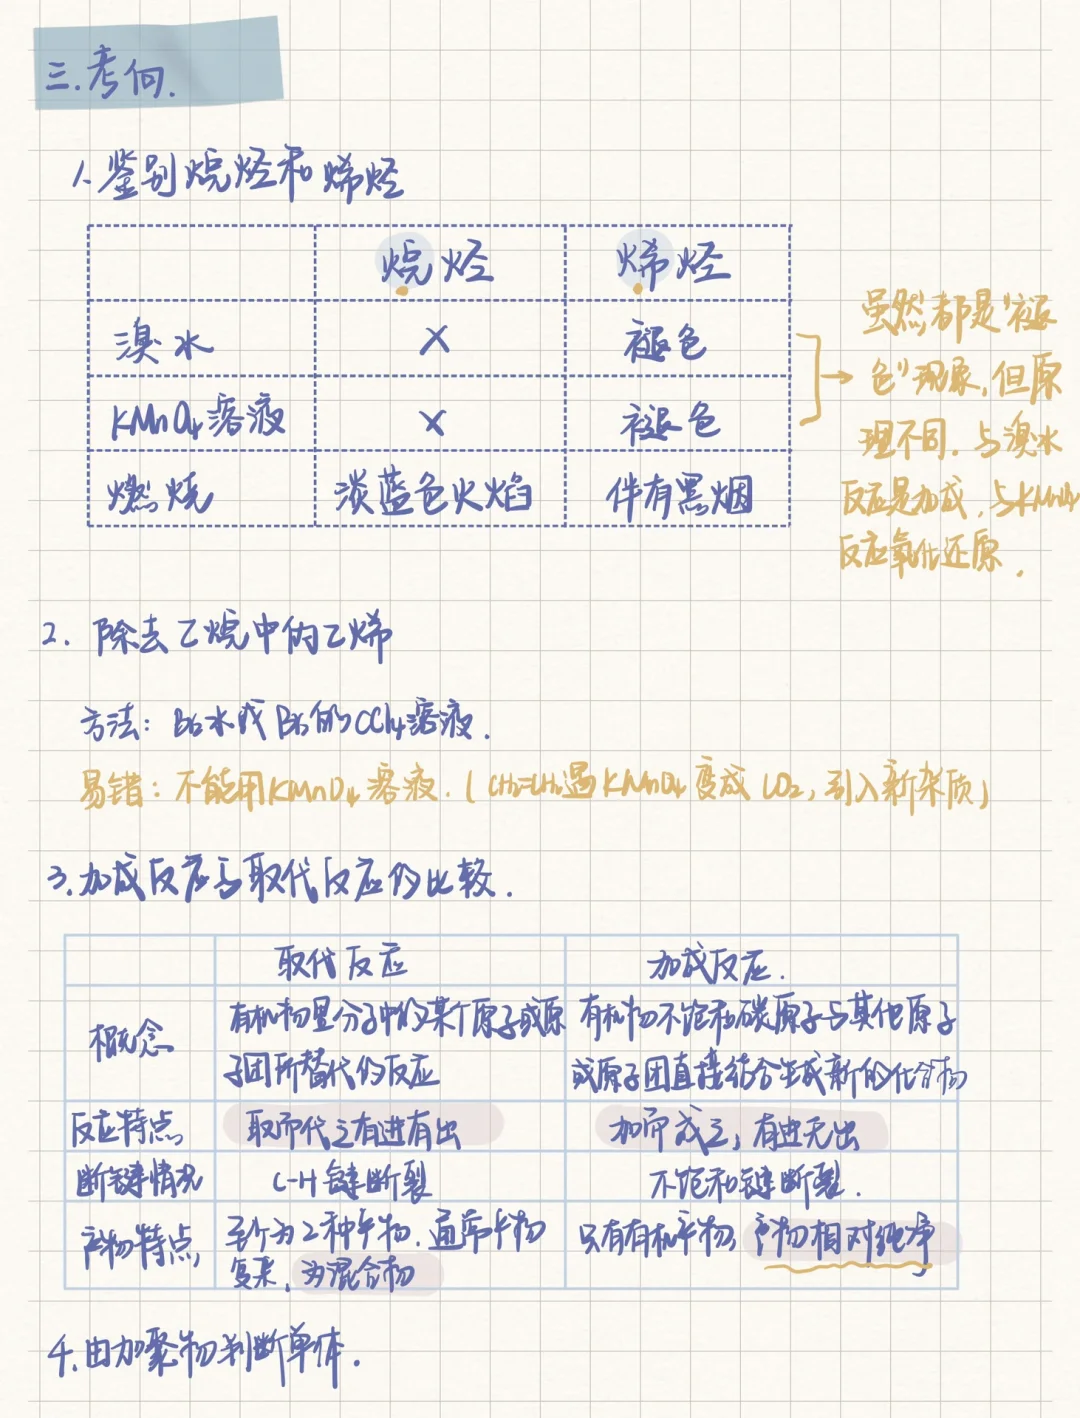 三.考向.
1.鉴别烷烃和烯烃
烷烃 烯烃
溴水 × 褪色
KMnO4溶液 × 褪色
燃烧 淡蓝色火焰 伴有黑烟
虽然都是"褪
色"现象,但原
理不同.与溴水
反应是加成,与KMnO4
反应氧化还原.
2. 除去乙烷中的乙烯
方法: Br2水或Br2的CCl4溶液.
易错: 不能用KMnO4溶液.(CH2=CH2遇KMnO4变成CO2,引入新杂质)
3.加成反应与取代反应的比较.
取代反应 加成反应.
概念
有机物里分子中的某个原子或原
子团所替代的反应
有机物不饱和碳原子与其他原子
或原子团直接结合生成新的化合物
反应特点 取而代之有进有出 加而成之,有进无出
断键情况 C-H键断裂 不饱和键断裂.
产物特点
至少为2种产物.通常产物
复杂,为混合物
只有有机产物,产物相对纯净
4.由加聚物判断单体.